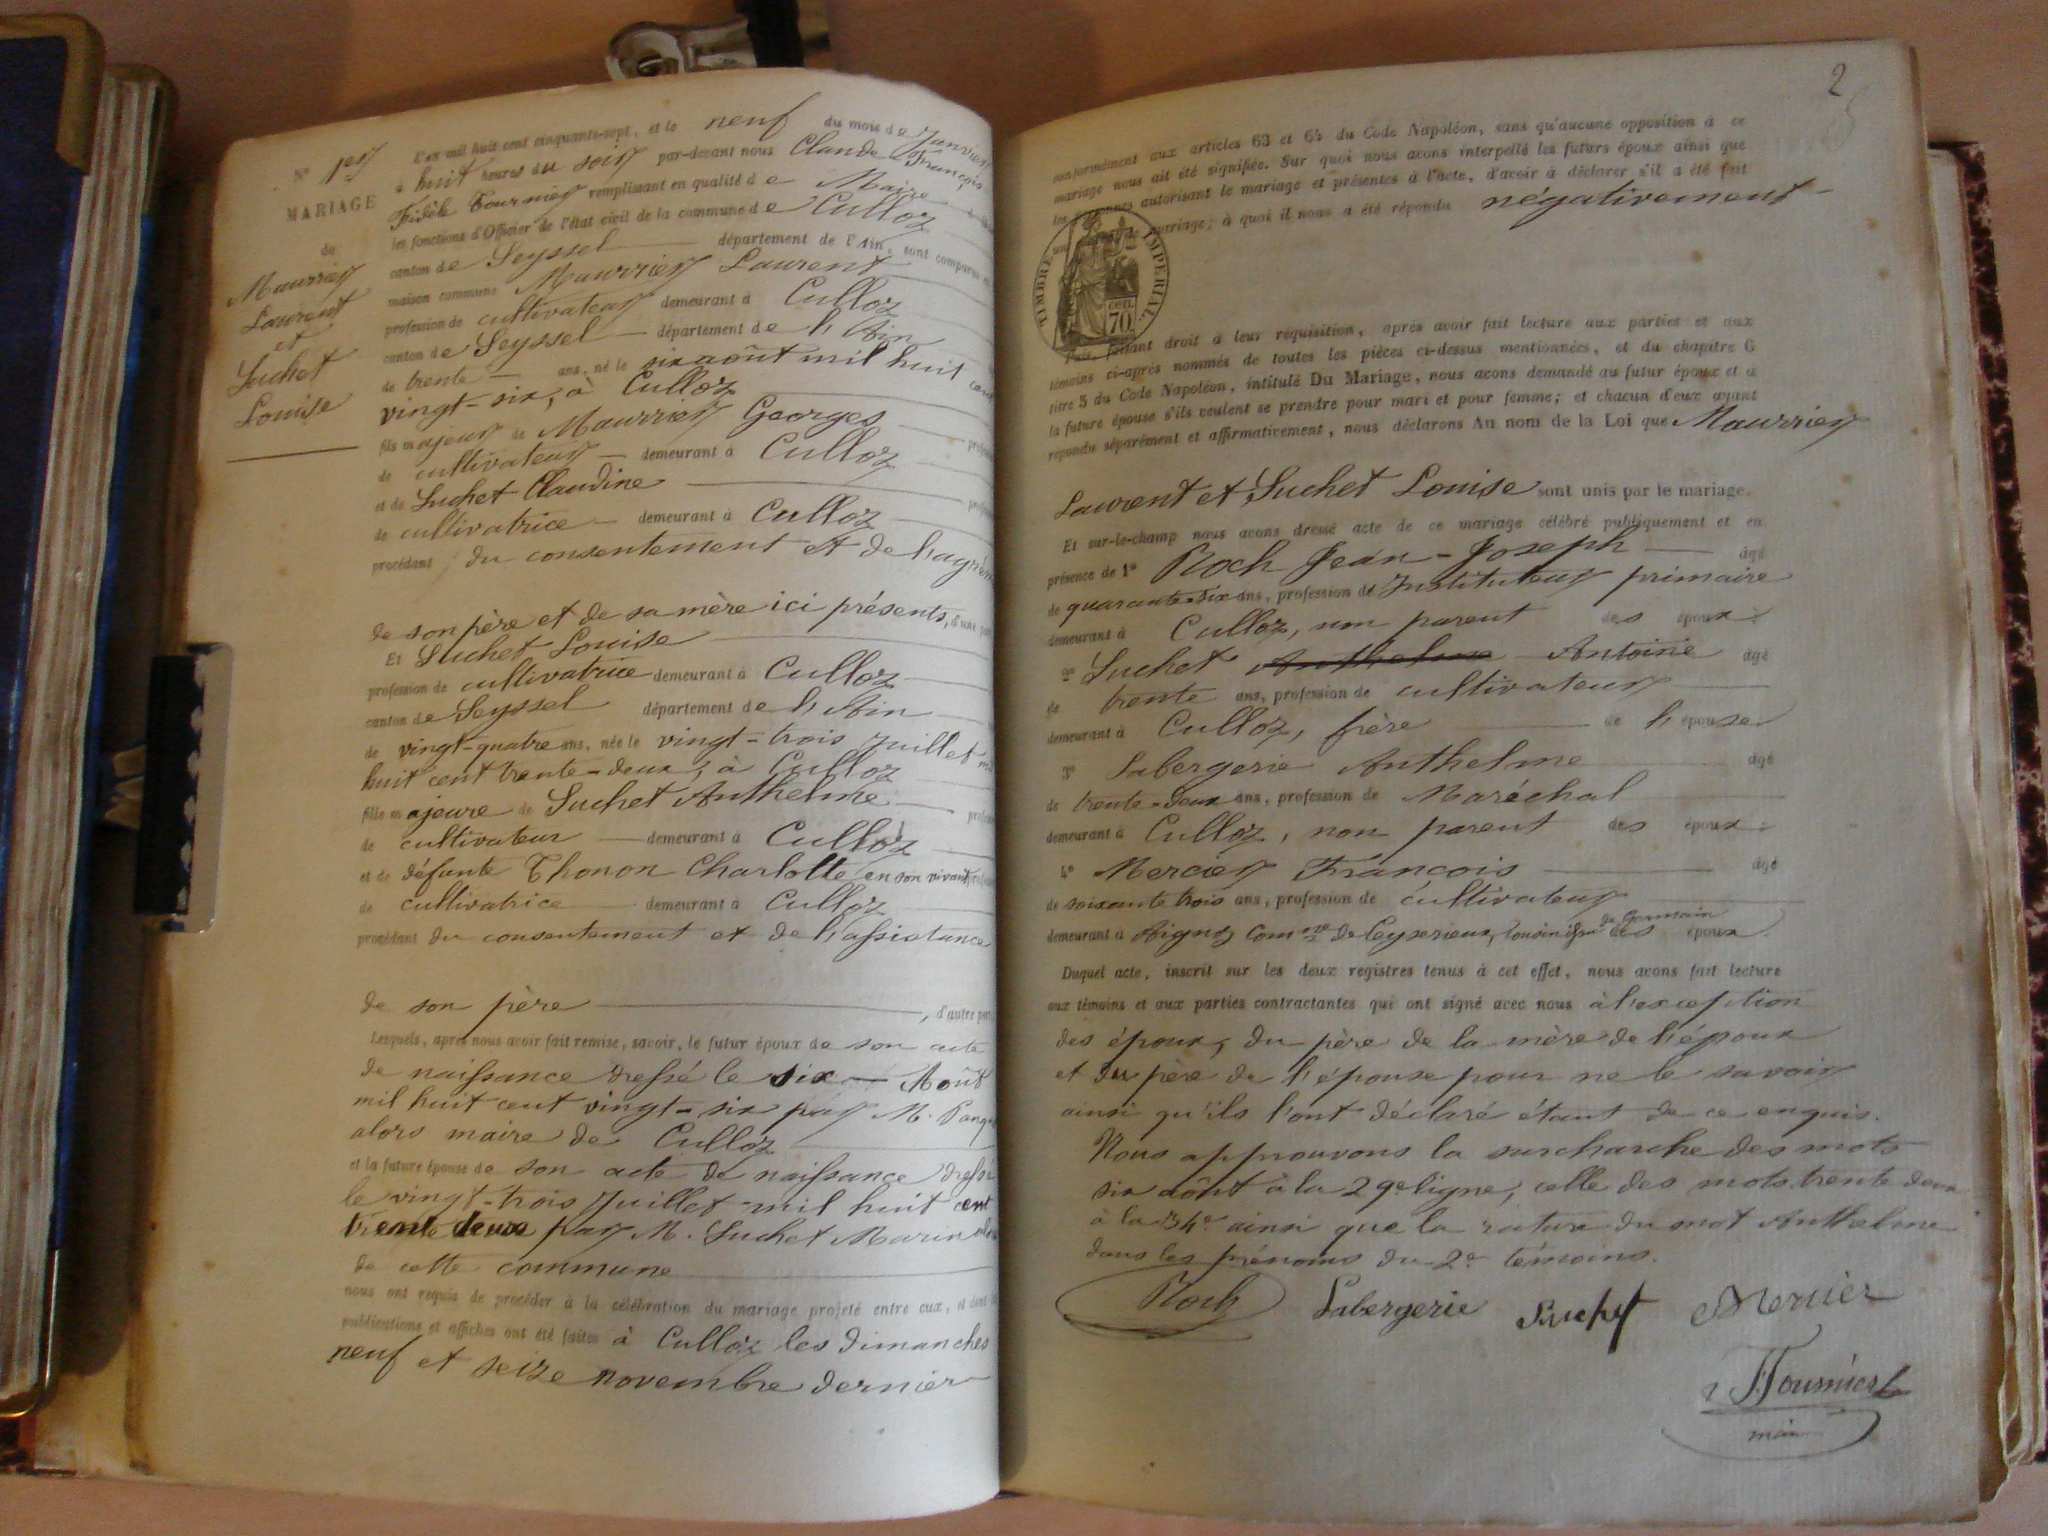 N° 1er
MARIAGE
de
Maurrier
Laurent
et
Suchet
Louise
L'an mil huit cent cinquante-sept, et le neuf du mois de Janvier
à huit heures du soir par-devant nous Claude François
Fidèle Fournier remplissant en qualité de Maire
les fonctions d'Officier de l'état civil de la commune de Culloz
canton de Seyssel département de l'Ain, sont comparus
maison commune Maurrier Laurent
profession de cultivateur demeurant à Culloz
canton de Seyssel département de l'Ain
de trente ans, né le six août mil huit cent
vingt-six, à Culloz
fils majeur de Maurrier Georges
de cultivateur demeurant à Culloz
et de Suchet Claudine
de cultivatrice demeurant à Culloz
procédant du consentement et de l'agrém
de son père et de sa mère ici présents, d'une part
Et Suchet Louise
profession de cultivatrice demeurant à Culloz
canton de Seyssel département de l'Ain
de vingt-quatre ans, née le vingt-trois Juillet mil
huit cent trente-deux, à Culloz
fille majeure de Suchet Anthelme
de cultivateur demeurant à Culloz
et de défunte Thonon Charlotte en son vivant
de cultivatrice demeurant à Culloz
procédant du consentement et de l'assistance
de son père , d'autre part
Lesquels, après nous avoir fait remise, savoir, le futur époux de son acte
de naissance dressé le six Août
mil huit cent vingt-six par M.
alors maire de Culloz
et la future épouse de son acte de naissance dressé
le vingt-trois Juillet mil huit cent
trente deux par M. Suchet Marin
de cette commune
nous ont requis de procéder à la célébration du mariage projeté entre eux, et dont
publications et affiches ont été faites à Culloz les dimanches
neuf et seize novembre dernier
2
conformément aux articles 63 et 64 du Code Napoléon, sans qu'aucune opposition à ce
mariage nous ait été signifiée. Sur quoi nous avons interpellé les futurs époux ainsi que
les personnes autorisant le mariage et présentes à l'acte, d'avoir à déclarer s'il a été fait
un de mariage; à quoi il nous a été répondu négativement
TIMBRE IMPERIAL
cen.
70
Puis, faisant droit à leur réquisition, après avoir fait lecture aux parties et aux
témoins ci-après nommés de toutes les pièces ci-dessus mentionnées, et du chapitre 6
titre 5 du Code Napoléon, intitulé Du Mariage, nous avons demandé au futur époux et à
la future épouse s'ils veulent se prendre pour mari et pour femme; et chacun d'eux ayant
répondu séparément et affirmativement, nous déclarons Au nom de la Loi que Maurrier
Laurent et Suchet Louise sont unis par le mariage.
Et sur-le-champ nous avons dressé acte de ce mariage célébré publiquement et en
présence de 1° Roch Jean-Joseph âgé
de quarante-six ans, profession d'Instituteur primaire
demeurant à Culloz, non parent des époux;
2° Suchet Anthelme Antoine âgé
de trente ans, profession de cultivateur
demeurant à Culloz, frère de l'épouse
3° Labergerie Anthelme âgé
de trente-deux ans, profession de Maréchal
demeurant à Culloz, non parent des époux;
4° Mercier François âgé
de soixante trois ans, profession de cultivateur
de Germain
demeurant à Aignoz Comne de Ceyzerieux, cousin issu des époux
Duquel acte, inscrit sur les deux registres tenus à cet effet, nous avons fait lecture
aux témoins et aux parties contractantes qui ont signé avec nous à l'exception
des époux, du père de la mère de l'époux
et du père de l'épouse pour ne le savoir
ainsi qu'ils l'ont déclaré étant de ce enquis.
Nous approuvons la surcharche des mots
six août à la 9e ligne, celle des mots trente deux
à la 34e ainsi que la rature du mot Anthelme
dans les prénoms du 2e témoins.
Roch Labergerie Suchet Mercier
Fournier
maire